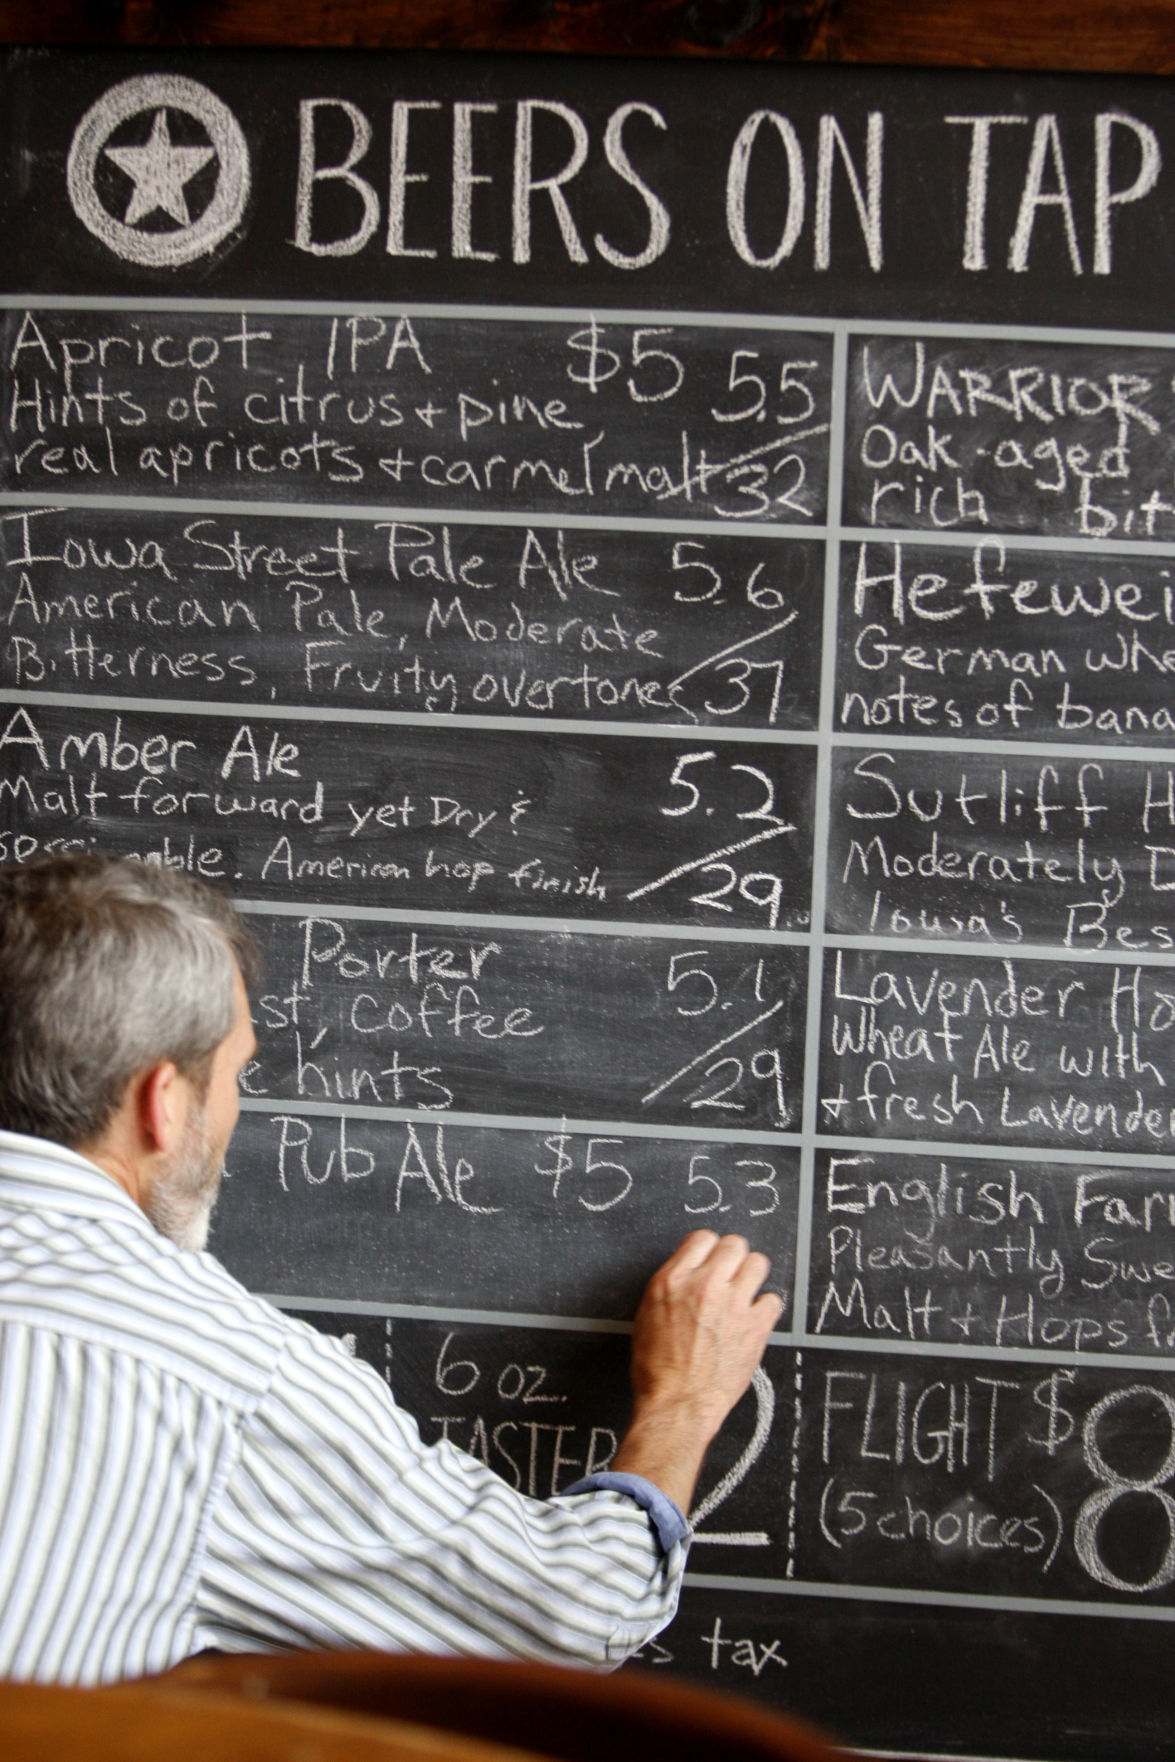 BEERS ON TAP
Apricot IPA $5 5.5
Hints of citrus + pine
real apricots + carmel malt 32
Iowa Street Pale Ale 5.6
American Pale, Moderate
Bitterness, Fruity overtones 37
Amber Ale 5.2
Malt forward yet Dry &
American hop finish 29
Porter 5.1
coffee
hints 29
Pub Ale $5 5.3
6 oz.
TASTER 2
WARRIOR
Oak-aged
rich bit
Hefewei
German whe
notes of bana
Sutliff H
Moderately D
Iowa's Bes
Lavender Ho
Wheat Ale with
+ fresh Lavender
English Far
Pleasantly Swe
Malt + Hops f
FLIGHT $8
(5 choices)
tax